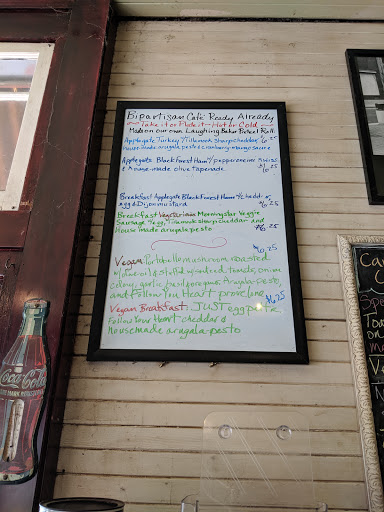 Bipartisan Café Ready Already
Take it or Plate it - Hot or Cold
Made on our own Laughing Baker Pretzel Roll.
Applegate Turkey/Tillamook Sharp cheddar
House-made arugala pesto cranberry orange sauce
6.25
Applegate Black Forest Ham/pepperoncini Swiss
& house-made olive Tapenade
6.25
Breakfast Applegate Black Forest Ham
egg & Dijon mustard
6.25
Breakfast Vegetarian Morningstar Veggie
Sausage egg, Tillamook sharp cheddar and
House made arugala pesto
6.25
6.25
Vegan Portabello mushroom roasted
olive oil stuffed w/ onion
celery, garlic, basil, oregano, Arugala-pesto,
and Follow Your Heart provolone
6.25
Vegan Breakfast: JUST egg
Follow Your Heart cheddar &
housemade arugala-pesto
Coca-Cola
TRADE MARK REGISTERED
Ca
Spe
To
on
Ma
Ve